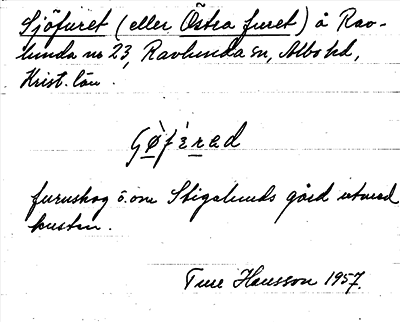 Sjöfuret (eller Östra furet) å Rav-
lunda nr 23, Ravlunda sn, Albo hd,
Krist. län.
furuskog ö. om Stigslunds gård utmed
kusten.
Ture Hansson 1957.